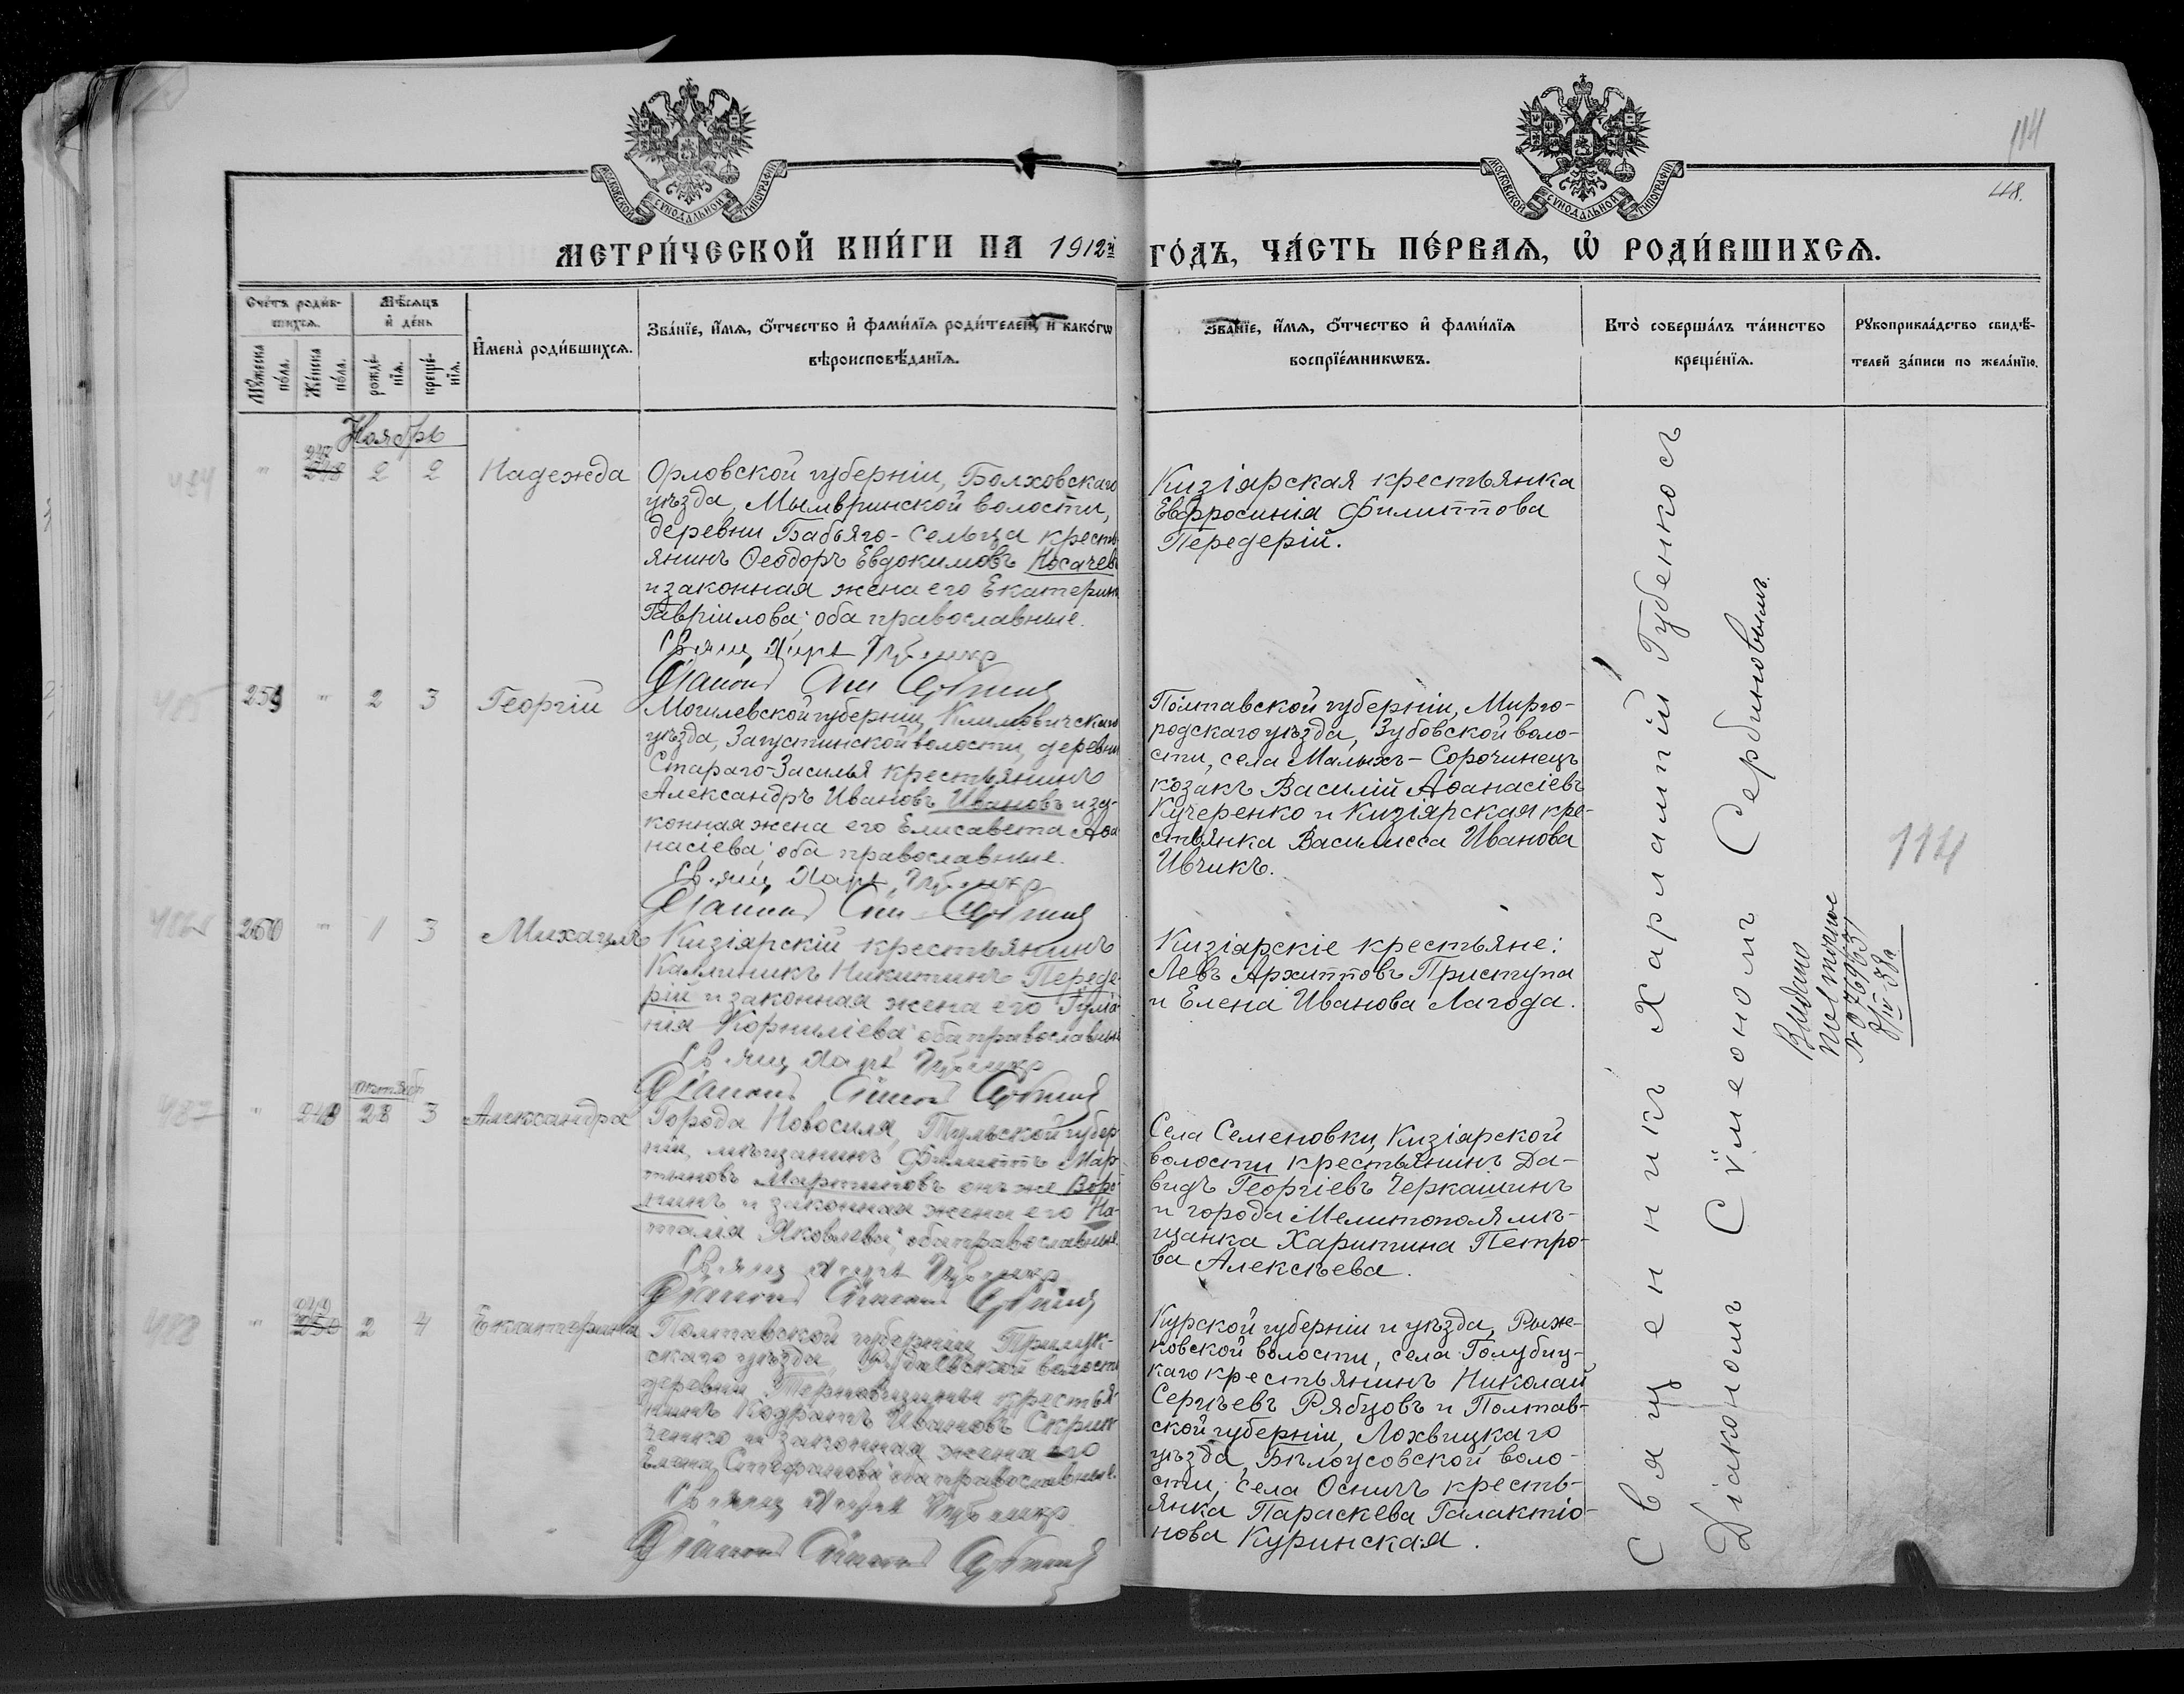 МОСКОВСКОЙ СѴНОДАЛЬНОЙ ТИПОГРАФІИ
МОСКОВСКОЙ СѴНОДАЛЬНОЙ ТИПОГРАФІИ
114
48.
МЕТРИ́ЧЕСКОЙ КНИ́ГИ НА 1912й ГО́ДЪ, ЧА́СТЬ ПЕ́РВАѦ, Ѡ҆ РОДИ́ВШИХСѦ.
Сче́тъ роди́в-
шихсѧ.
Мѣ́сѧцъ
и҆ де́нь
Мꙋ́жеска по́ла.
Же́нска по́ла.
рожде́-
нїѧ.
креще́-
нїѧ.
И҆мена̀ роди́вшихсѧ.
Зва́нїе, и҆́мѧ, ѻ҆́тчество и҆ фами́лїѧ роди́телей, и҆ како́гѡ
вѣроисповѣ́данїѧ.
Зва́нїе, и҆́мѧ, ѻ҆́тчество и҆ фами́лїѧ
воспрїе́мникѡвъ.
Кто̀ соверша́лъ та́инство
креще́нїѧ.
Рꙋкоприкла́дство свидѣ́-
телей за́писи по жела́нїю.
Ноябрь
484
" 2 2
Надежда
Орловской губерніи, Болховскаго
уѣзда, Мымринской волости,
деревни Бабьяго-Сельца кресть-
янинъ Ѳеодоръ Евдокимовъ Косачев
и законная жена его Екатерин
Гавріилова; оба православные.
Свящ. Хар. Губенко
Діаконъ Сѵм. Сербинов
Кизіярская крестьянка
Евфросинія Филиппова
Передерій.
485
259 " 2 3
Георгій
Могилевской губерніи, Климовичскаго
уѣзда, Загустинской волости, деревни
Стараго-Заселья крестьянинъ
Александръ Ивановъ Ивановъ и за-
конная жена его Елисавета Аѳа
насіева; оба православные.
Свящ. Хар. Губенко
Діаконъ Сѵм. Сербинов
Полтавской губерніи, Мирго-
родскаго уѣзда, Зубовской воло-
сти, села Малыхъ-Сорочинецъ
козакъ Василій Аѳанасіевъ
Кучеренко и Кизіярская кре-
стьянка Василисса Иванова
Ивчикъ.
486
260 " 1 3
Михаилъ
Кизіярскій крестьянинъ
Каллиникъ Никитинъ Переде-
рій и законная жена его Іулiа
нія Корниліева; оба православные
Свящ. Хар. Губенко
Діаконъ Сѵмеон Сербинов
Кизіярскіе крестьяне:
Левъ Архипповъ Приступа
и Елена Иванова Лагода.
487
октябр
" 248 28 3
Александра
Города Новосиля, Тульской губер
ніи, мѣщанинъ Филиппъ Мар
тиновъ Мартиновъ онъ же Воро-
нинъ и законная жена его На-
талія Яковлева; оба православные.
Свящ. Хар. Губенко
Діаконъ Сѵмеон Сербинов
Села Семеновки, Кизіярской
волости крестьянинъ Да-
видъ Георгіевъ Черкашинъ
и города Мелитополя мѣ-
щанка Харитина Петро-
ва Алексѣева.
488
249
250
" 2 4
Екатерина
Полтавской губерніи, Прилук-
скаго уѣзда, волости
деревни крестья-
нинъ Кодратъ Ивановъ Скрип
ченко и законная жена его
Елена Стефанова; оба православные.
Свящ. Хар. Губенко
Діаконъ Сѵмеон Сербинов
Курской губерніи и уѣзда, Рыж-
ковской волости, села Голубиц-
каго крестьянинъ Николай
Сергѣевъ Рябцовъ и Полтав-
ской губерніи, Лохвицкаго
уѣзда, Бѣлоусовской воло-
сти, села Оснягъ кресть-
янка Параскева Галактіо-
нова Куринская.
Священникъ Харлампій Губенко съ
Діакономъ Сѵмеономъ Сербиновымъ.
Выдано
114